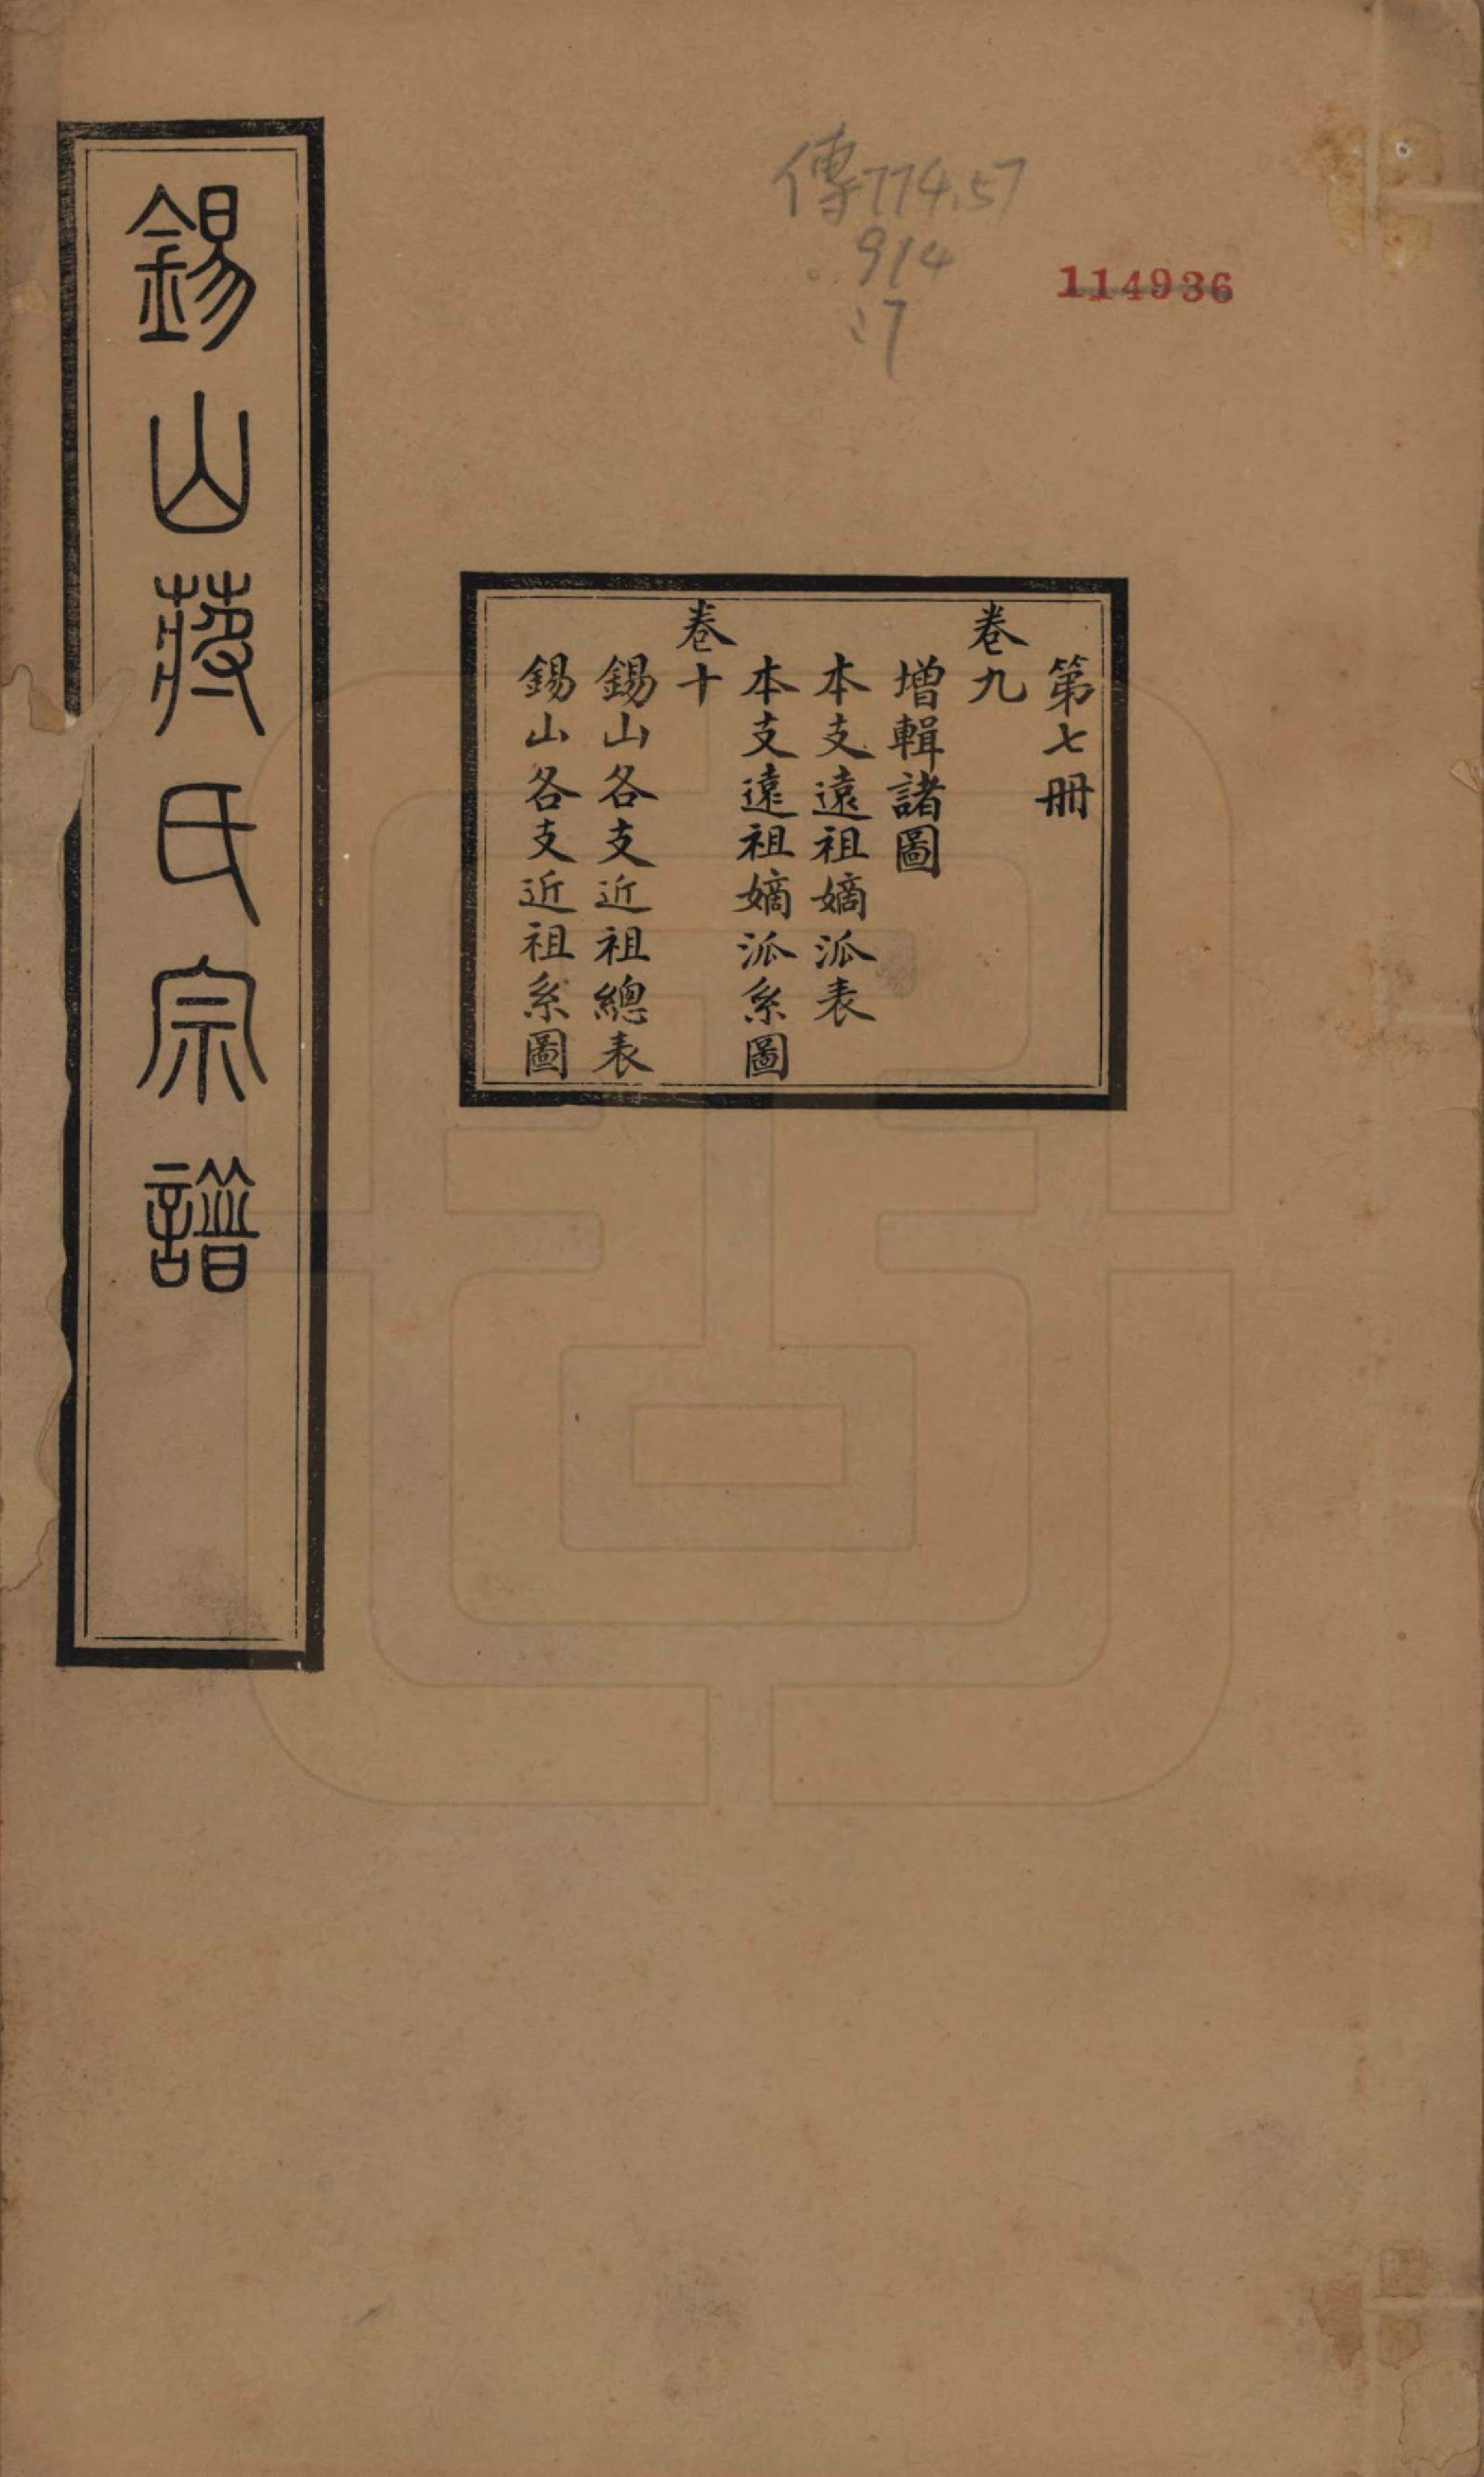 傳774.57
914
:7
114936
第七冊
卷九
增輯諸圖
本支遠祖嫡派表
本支遠祖嫡派系圖
卷十
錫山各支近祖總表
錫山各支近祖系圖
錫山蔣氏宗譜